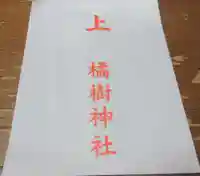 上
橘樹神社